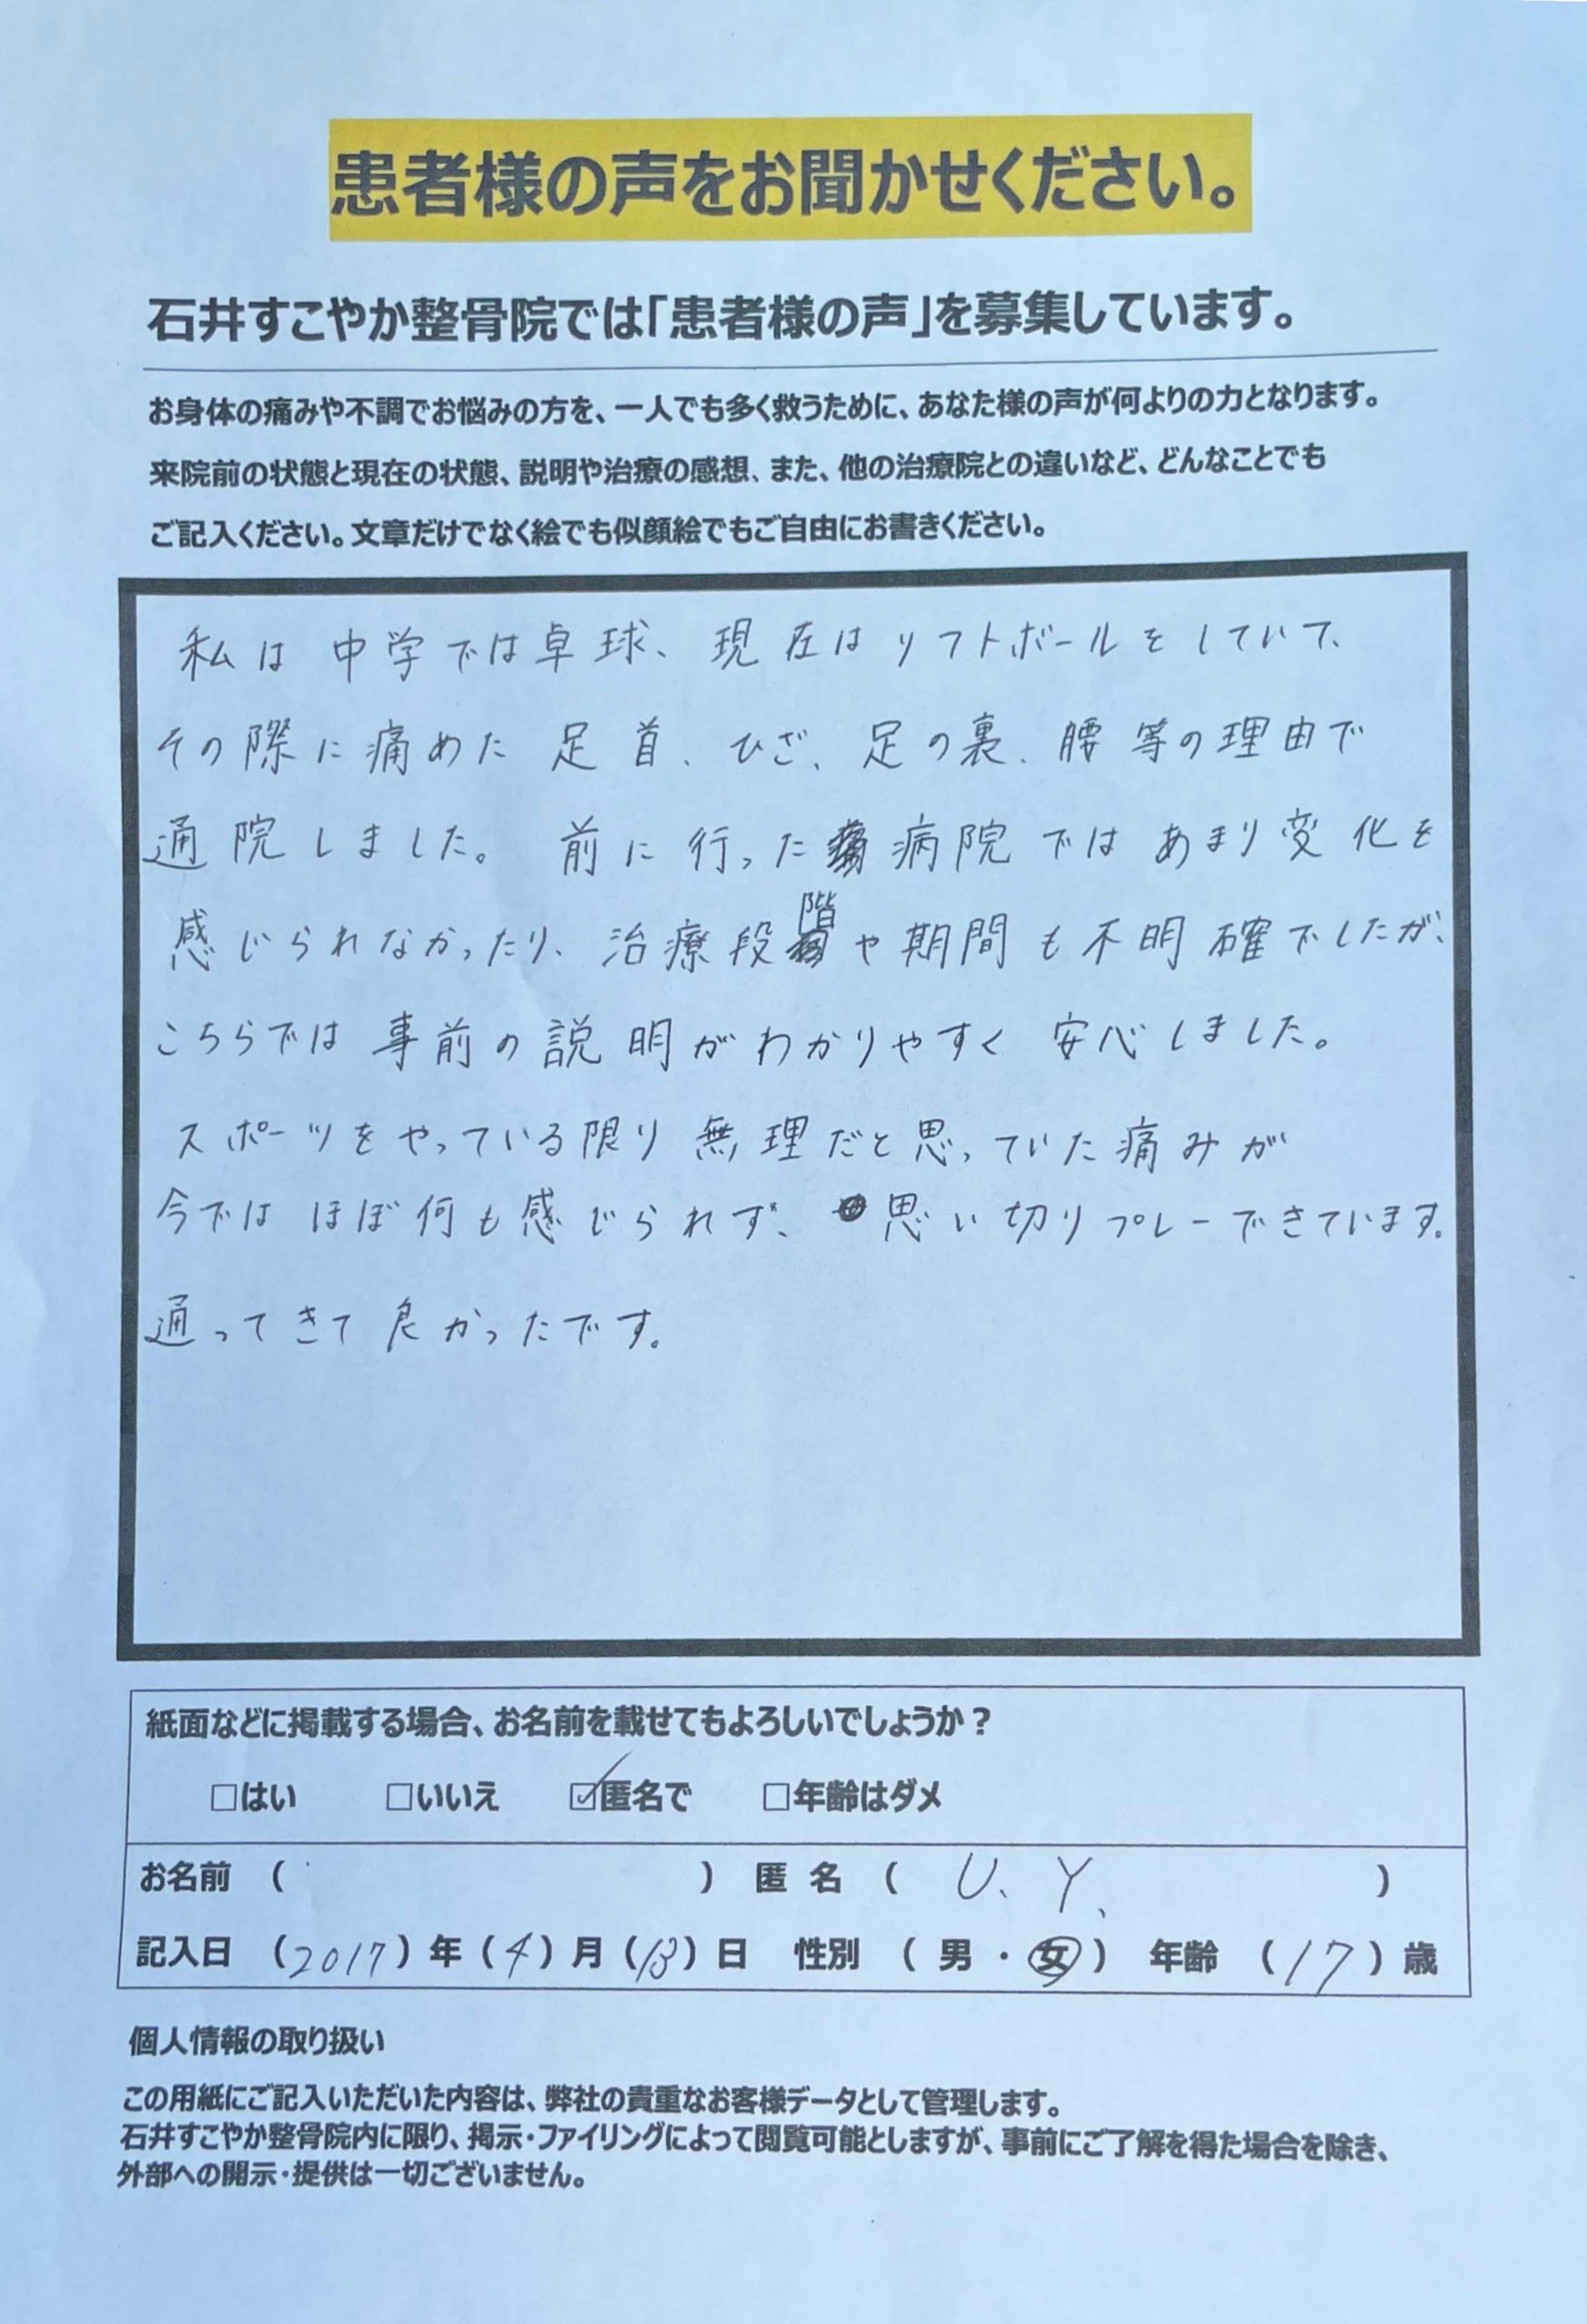 患者様の声をお聞かせください。
石井すこやか整骨院では「患者様の声」を募集しています。
お身体の痛みや不調でお悩みの方を、一人でも多く救うために、あなた様の声が何よりの力となります。
来院前の状態と現在の状態、説明や治療の感想、また、他の治療院との違いなど、どんなことでも
ご記入ください。文章だけでなく絵でも似顔絵でもご自由にお書きください。
私は中学では卓球、現在はソフトボールをしていて、
その際に痛めた足首、ひざ、足の裏、腰等の理由で
通院しました。前に行った病院ではあまり変化を
感じられなかったり、治療段階や期間も不明確でしたが、
こちらでは事前の説明がわかりやすく安心しました。
スポーツをやっている限り無理だと思っていた痛みが
今ではほぼ何も感じられず、思い切りプレーできています。
通ってきて良かったです。
紙面などに掲載する場合、お名前を載せてもよろしいでしょうか？
□はい □いいえ ☑匿名で □年齢はダメ
お名前 （ ） 匿名 （ U、Y、 ）
記入日 （2017）年（4）月（13）日 性別 （ 男 ・ 女 ） 年齢 （17）歳
個人情報の取り扱い
この用紙にご記入いただいた内容は、弊社の貴重なお客様データとして管理します。
石井すこやか整骨院内に限り、掲示・ファイリングによって閲覧可能としますが、事前にご了解を得た場合を除き、
外部への開示・提供は一切ございません。